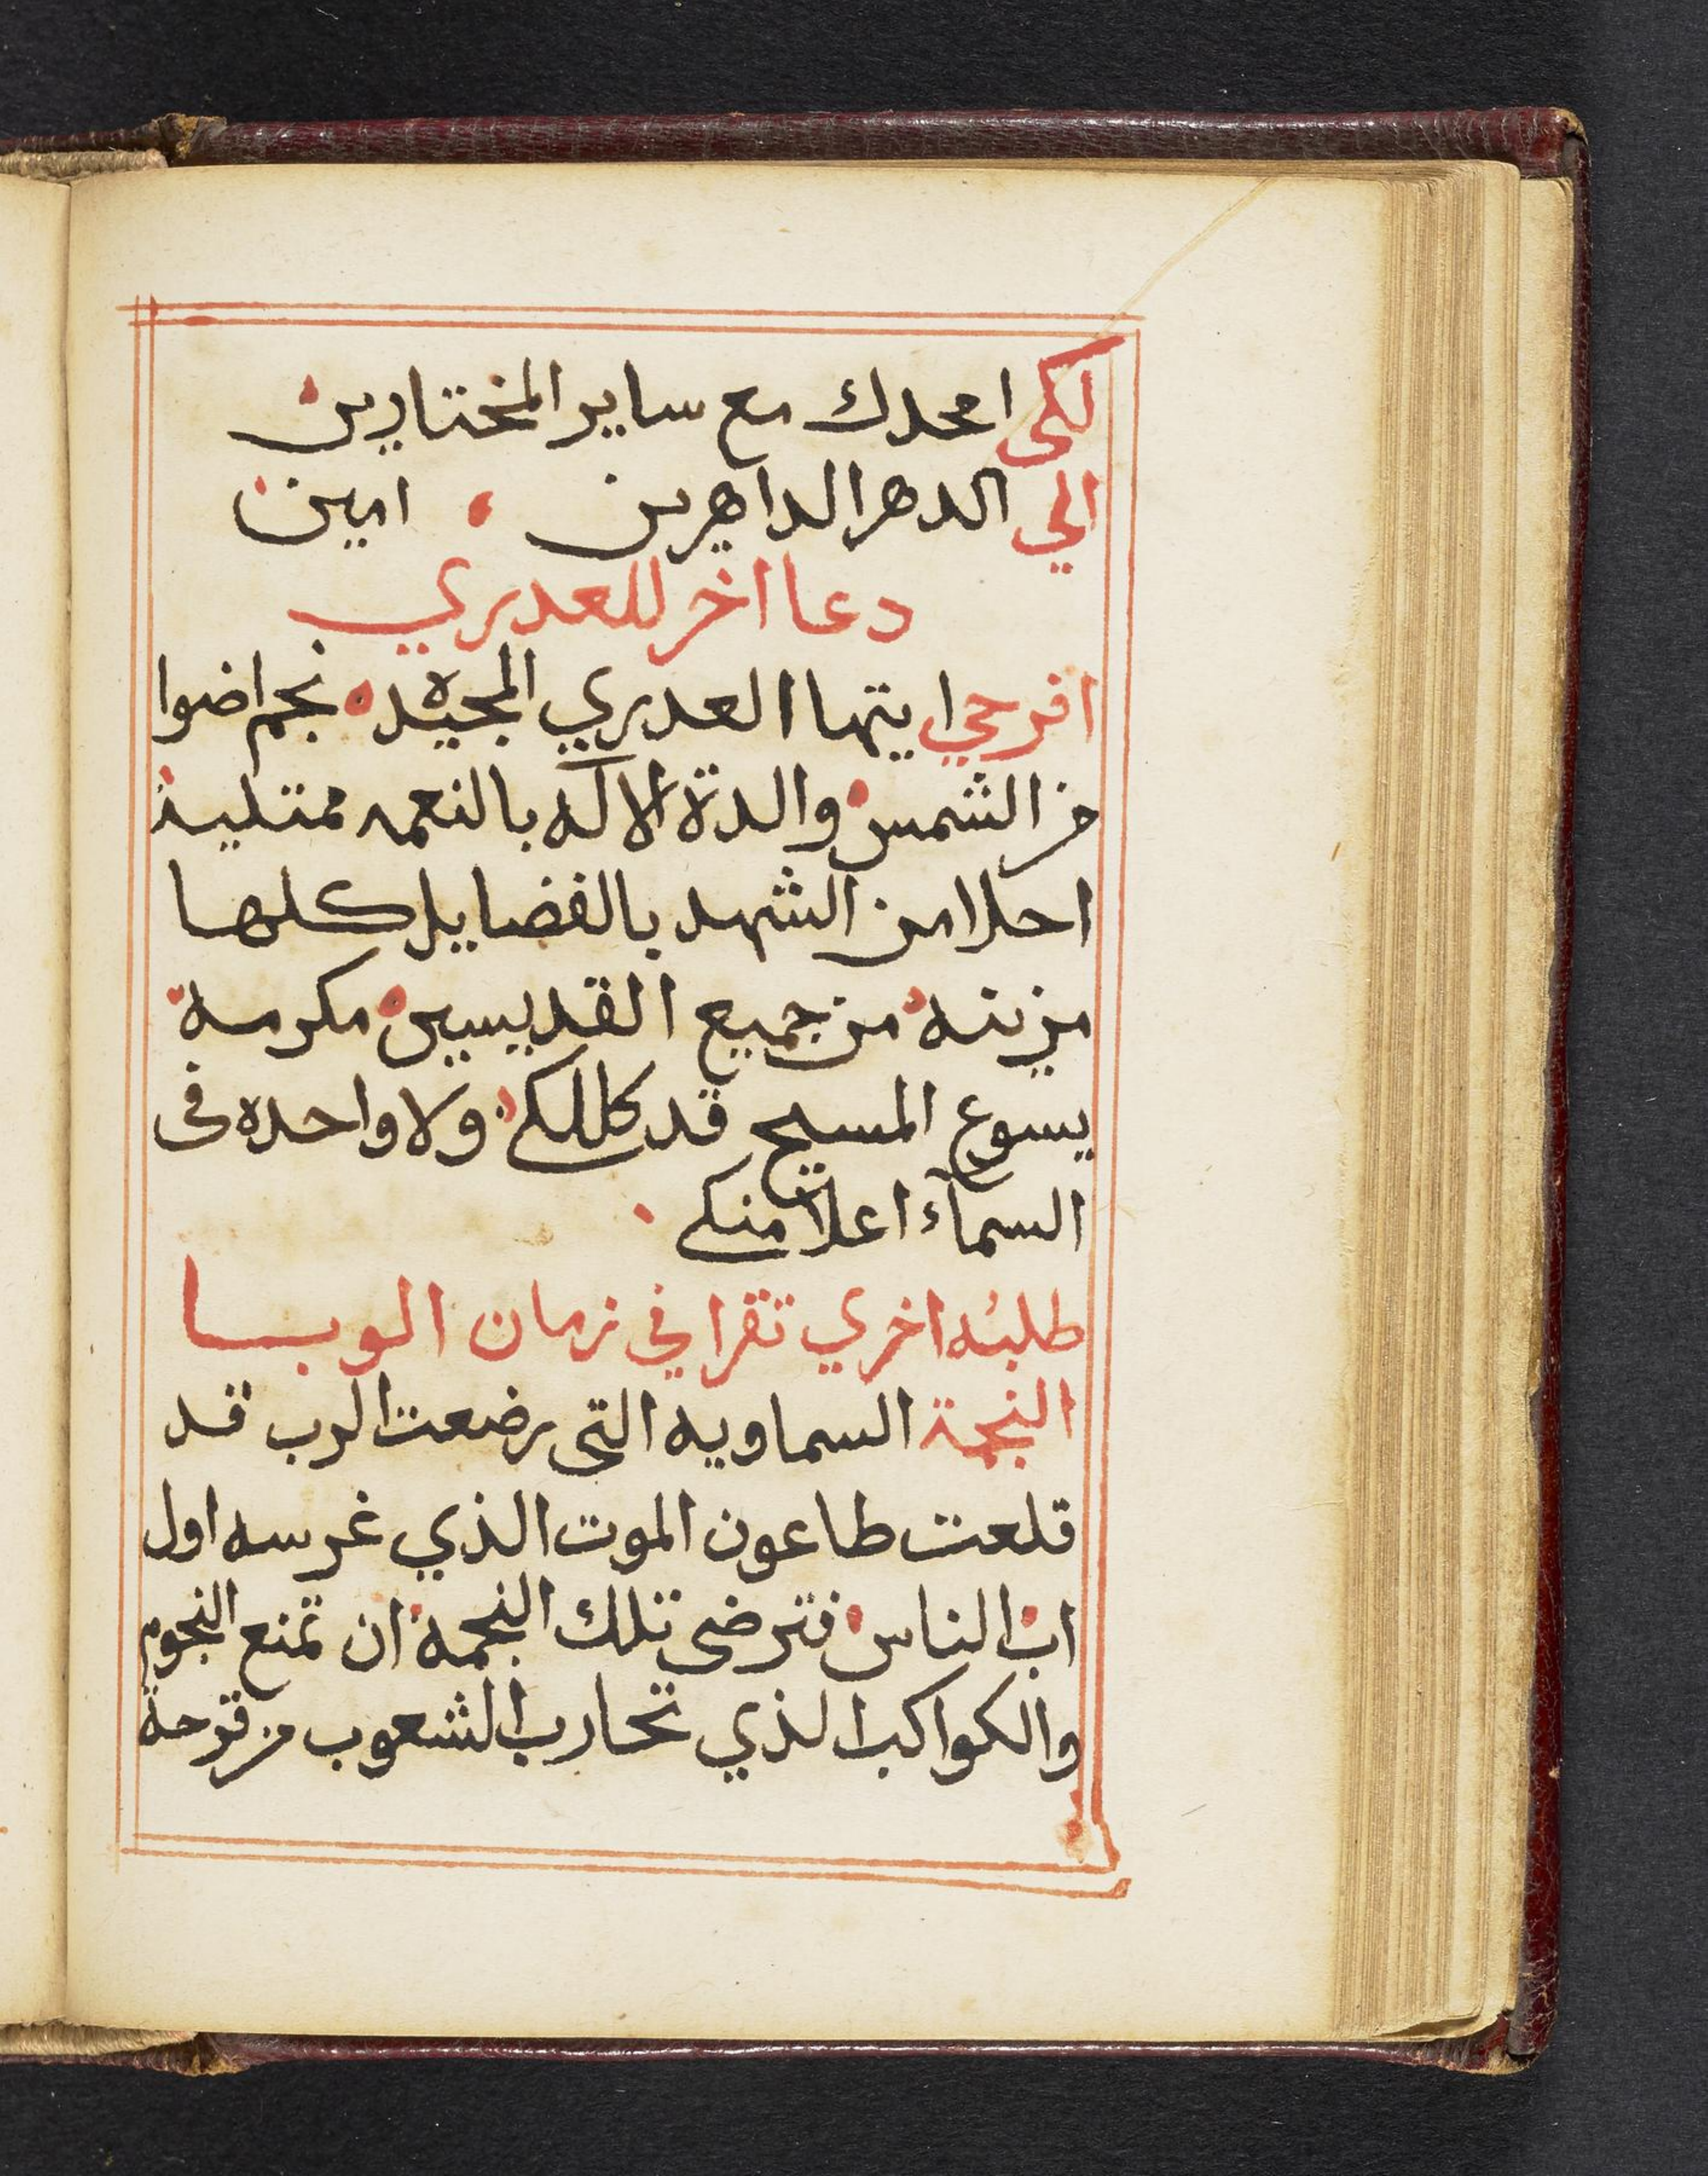 لكى امجدك مع ساير المختارين
الي الدهر الداهرين امين
دعا اخر للعدري
افرحي ايتها العدري المجيده نجم اضوا
من الشمس والدة الاله بالنعمه ممتلية
احلا من الشهد بالفضايل كلها
مزينه من جميع القديسين مكرمة
يسوع المسيح قد كللكي ولا واحده فى
السمآء اعلا منكي
طلبه اخري تقرا في زمان الوبا
النجمة السماويه التى رضعت الرب قد
قلعت طاعون الموت الذي غرسه اول
اب الناس فترضى تلك النجمة ان تمنع النجوم
والكواكب الذي تحارب الشعوب من قرحة